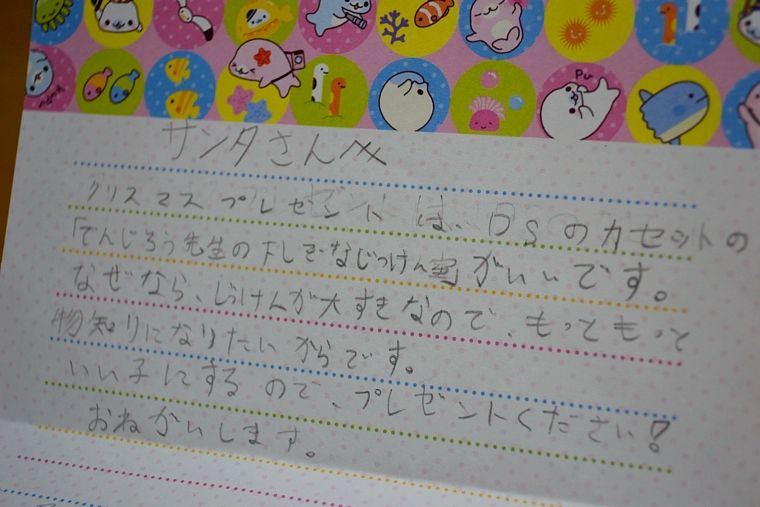 Pu
サンタさんへ
クリスマスプレゼントは、DSのカセットの
「でんじろう先生のふしぎなじっけん室がいいです。
なぜなら、じっけんが大すきなので、もっともっと
物知りになりたいからです。
いい子にするので、プレゼントください!
おねがいします。